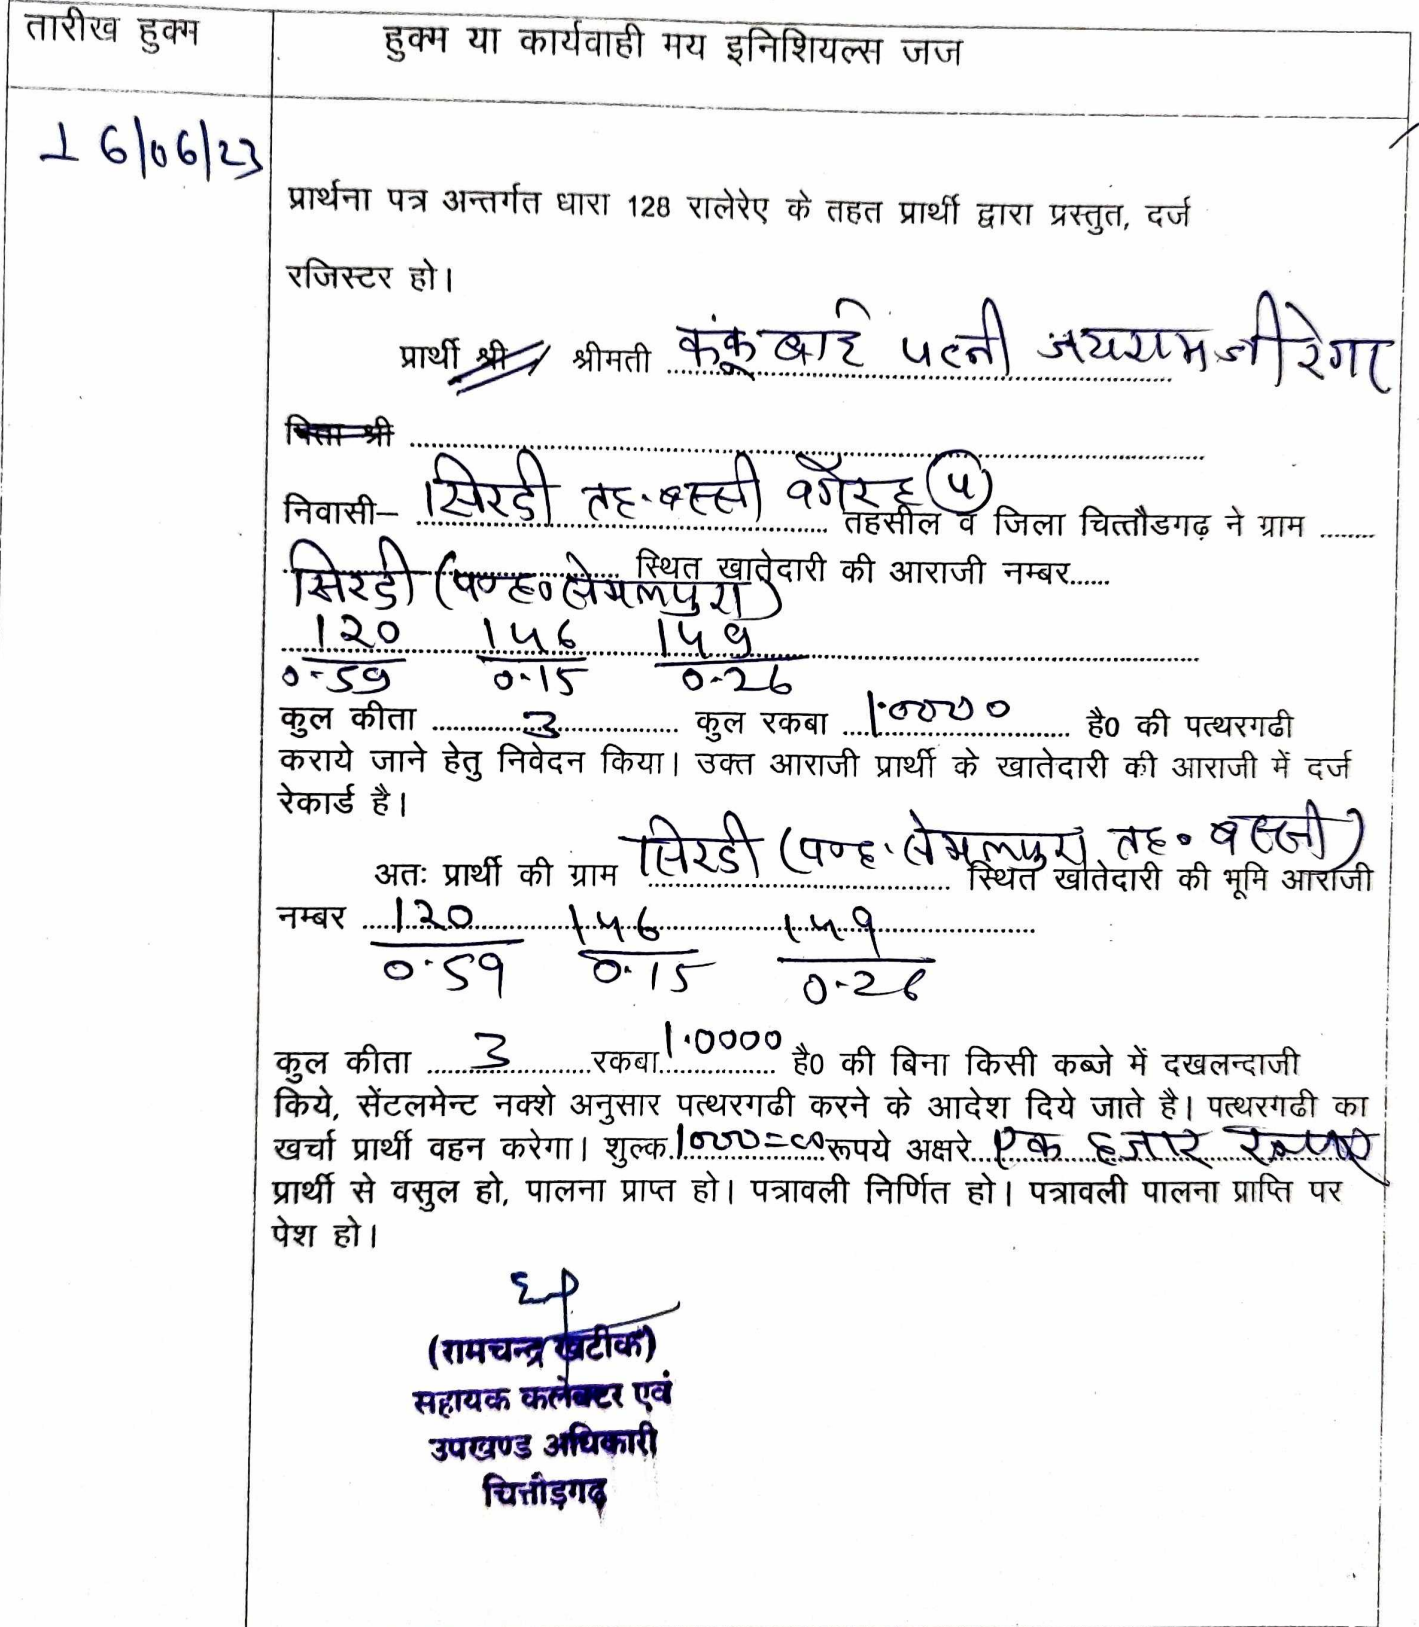 तारीख हुक्म
हुक्म या कार्यवाही मय इनिशियल्स जज
16/06/23
प्रार्थना पत्र अन्तर्गत धारा 128 रालेरेए के तहत प्रार्थी द्वारा प्रस्तुत, दर्ज
रजिस्टर हो।
प्रार्थी श्री श्रीमती कंकू बाई पत्नी जयराम जी रेगर
पिता श्री
निवासी– सिरडी तह. बस्सी वगैरह (५) तहसील व जिला चित्तौडगढ़ ने ग्राम
सिरडी (प०ह० सेमलपुरा) स्थित खातेदारी की आराजी नम्बर
120 146 149
0.59 0.15 0.26
कुल कीता 3 कुल रकबा 1.0000 है0 की पत्थरगढी
कराये जाने हेतु निवेदन किया। उक्त आराजी प्रार्थी के खातेदारी की आराजी में दर्ज
रेकार्ड है।
अतः प्रार्थी की ग्राम सिरडी (प०ह. सेमलपुरा तह० बस्सी) स्थित खातेदारी की भूमि आराजी
नम्बर 120 146 149
0.59 0.15 0.26
कुल कीता 3 रकबा 1.0000 है0 की बिना किसी कब्जे में दखलन्दाजी
किये, सेंटलमेन्ट नक्शे अनुसार पत्थरगढी करने के आदेश दिये जाते है। पत्थरगढी का
खर्चा प्रार्थी वहन करेगा। शुल्क 1000=00 रूपये अक्षरे एक हजार रूपए
प्रार्थी से वसुल हो, पालना प्राप्त हो। पत्रावली निर्णित हो। पत्रावली पालना प्राप्ति पर
पेश हो।
(रामचन्द्र खटीक)
सहायक कलेक्टर एवं
उपखण्ड अधिकारी
चित्तौड़गढ़